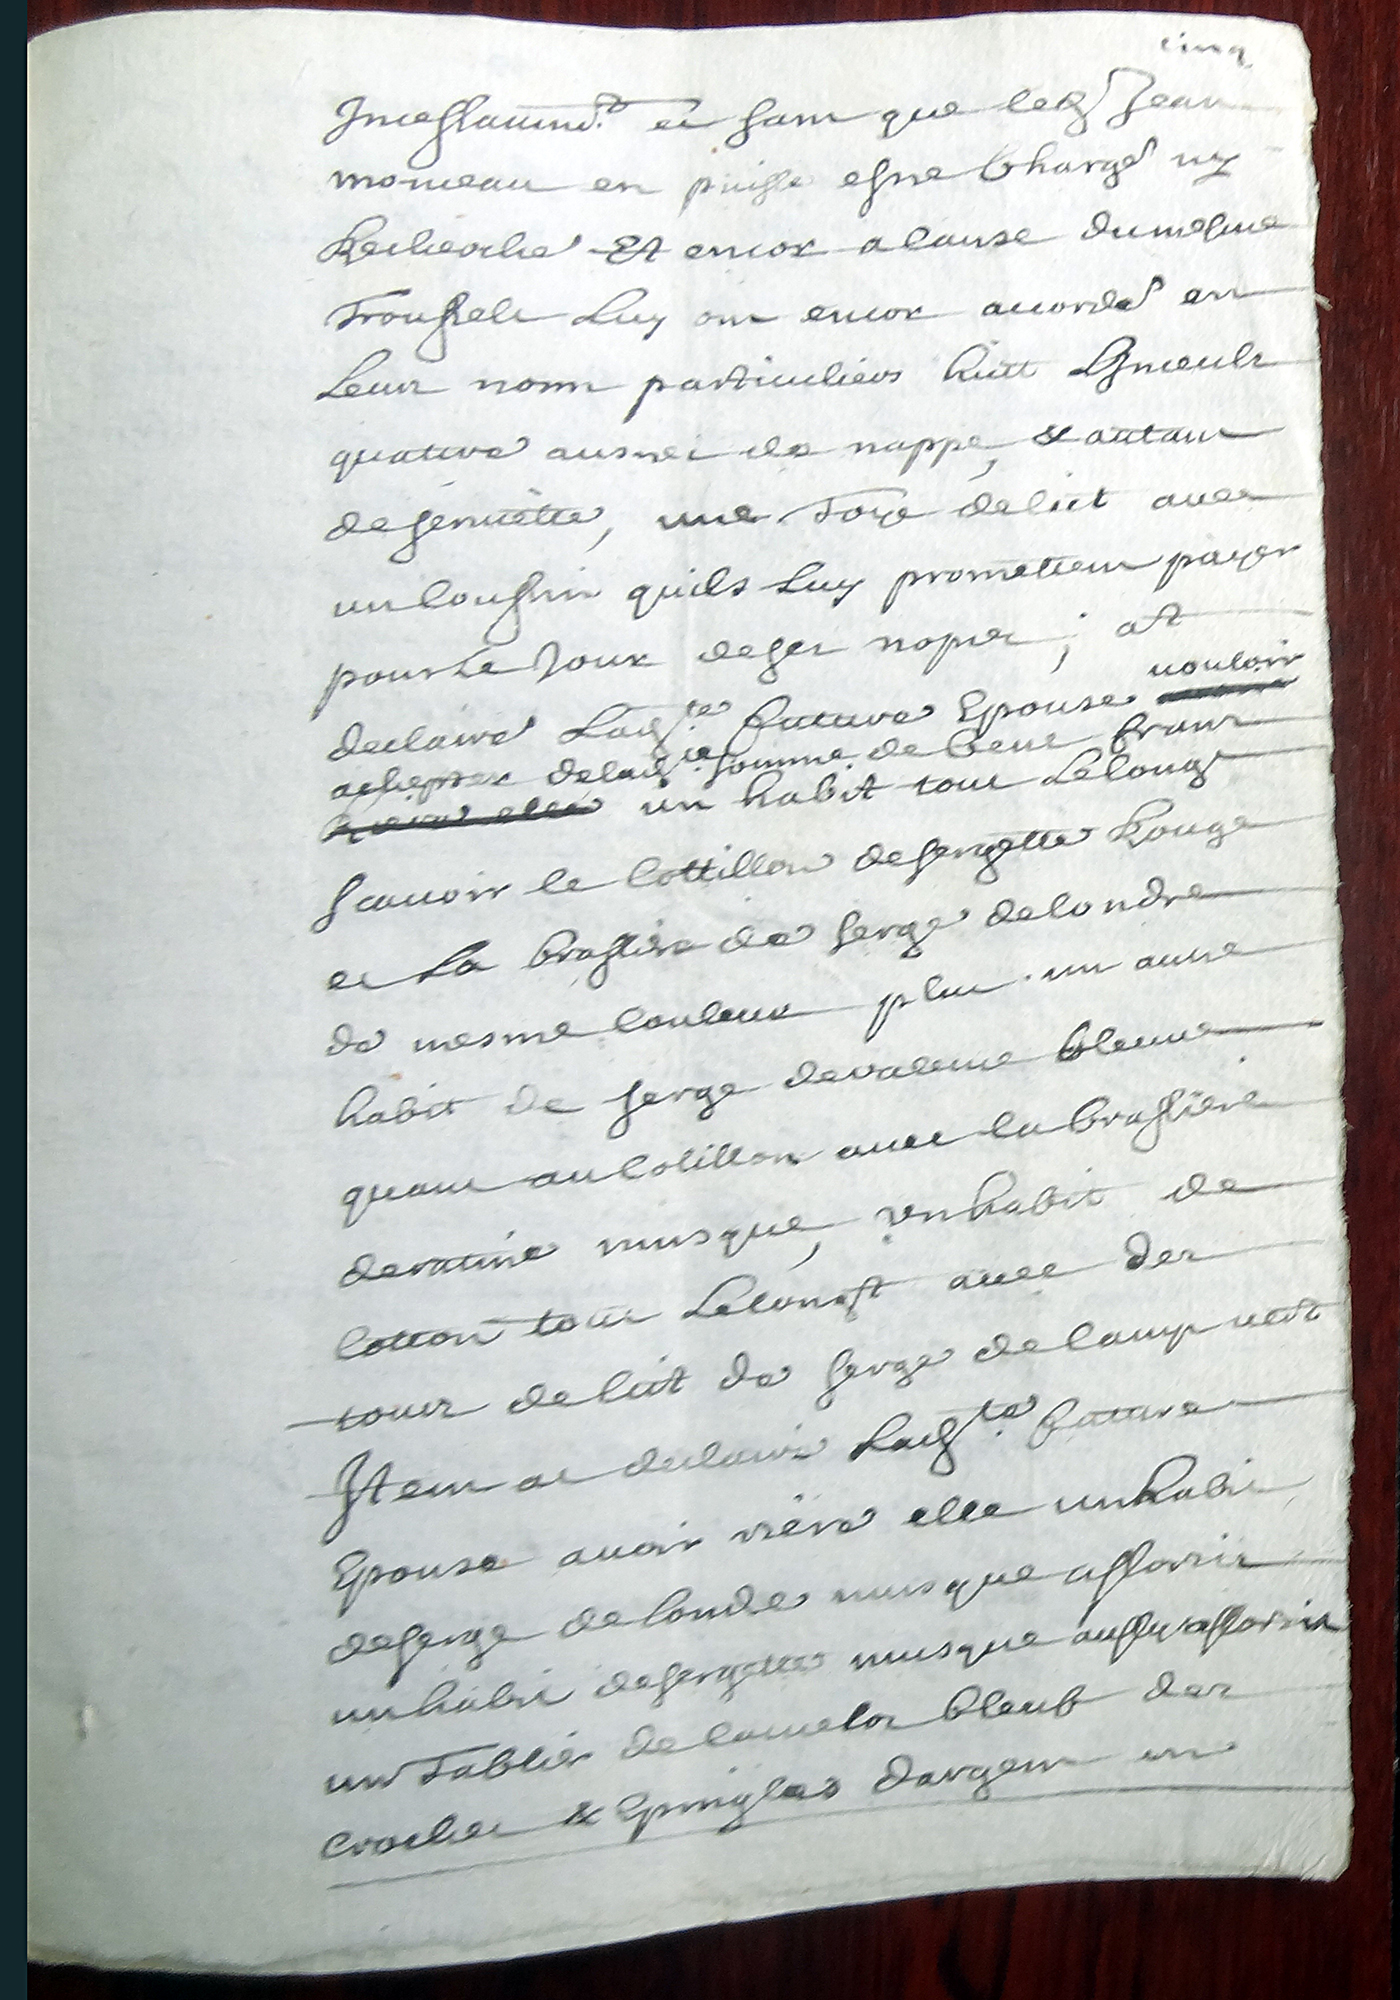 cinq
Incessammt et sans que led Jean
moneau en puisse estre Chargé ny
Recherche Et encor a cause du mesme
Troussele Luy ont encor accordé en
Leur nom particuliers huit Linceuls
quatres ausnes de nappe, & autant
de serviette, une Toye de lict avec
un Coussin quils Luy promettent payer
pour Le Jour de ses nopces ; at
declaire Ladte future Epouse vouloir
achepter de ladte somme de Cent frans
un habit tout Lelong
scavoir le Cottillon de sergette Rouge
et La brassiere de serge de londre
de mesme Couleur plus un autre
habit de serge de valence bleuue
quant au Cotillon avec la brassiere
de ratine musque, un habit de
Cotton tout Lelongt avec des
tours de lict de serge de Camp vert
Item at declaire Ladte future
Epouse avoir riere elle un habit
de serge de londre musque assortis
un habit de sergette musque aussy assortis
un Tablier de Camelot bleub des
Crochet & Epingles dargent un